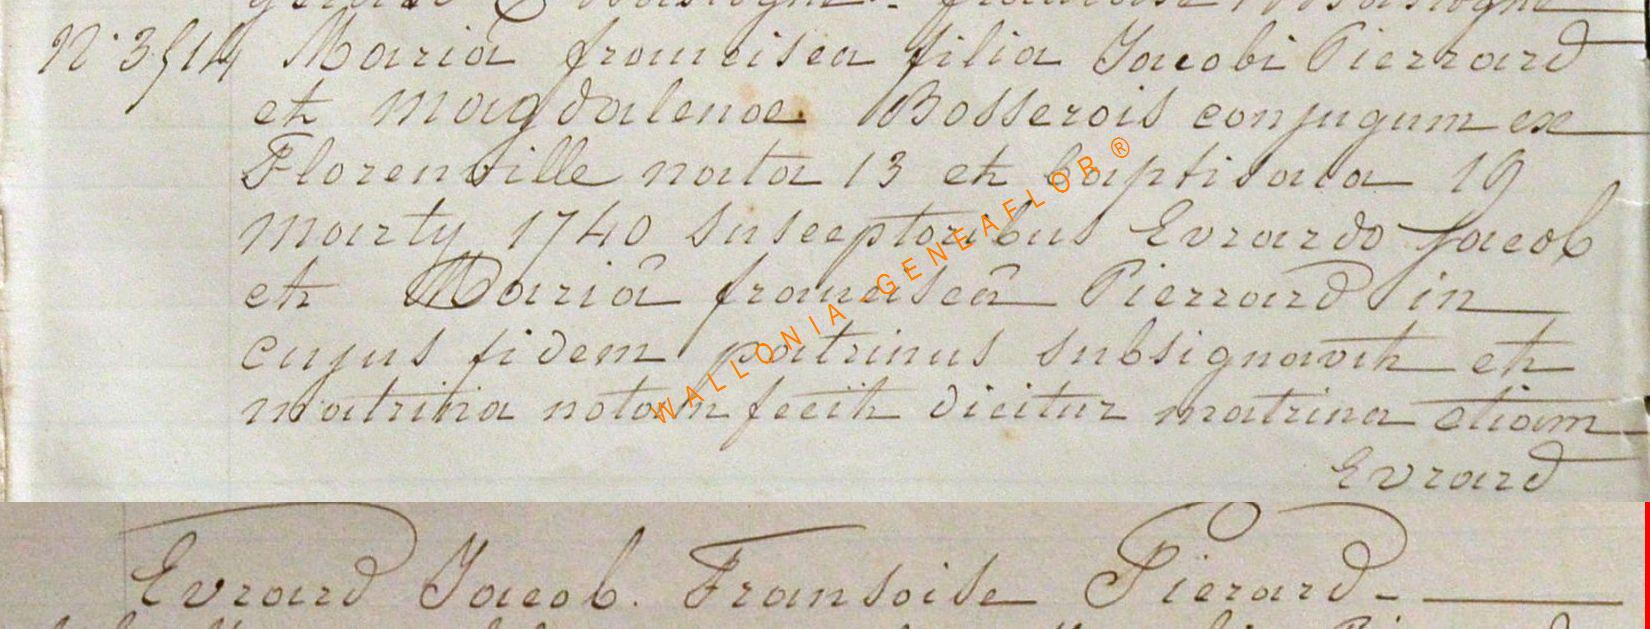 N° 3514 Mariâ francisca filia Jacobi Pierrard
et Magdalenoe Bosserois conjugum ex
Florenville nata 13 et baptisata 19
marty 1740 susceptoribus Evrardo Jacob
et Mariâ franciscâ Pierrard in
cujus fidem patrinus subsignavit et
matrina notam fecit dicitur matrina etiam
Evrard
Evrard Jacob. Fransoise Pierard -
WALLONIA-GENEAFLOR®